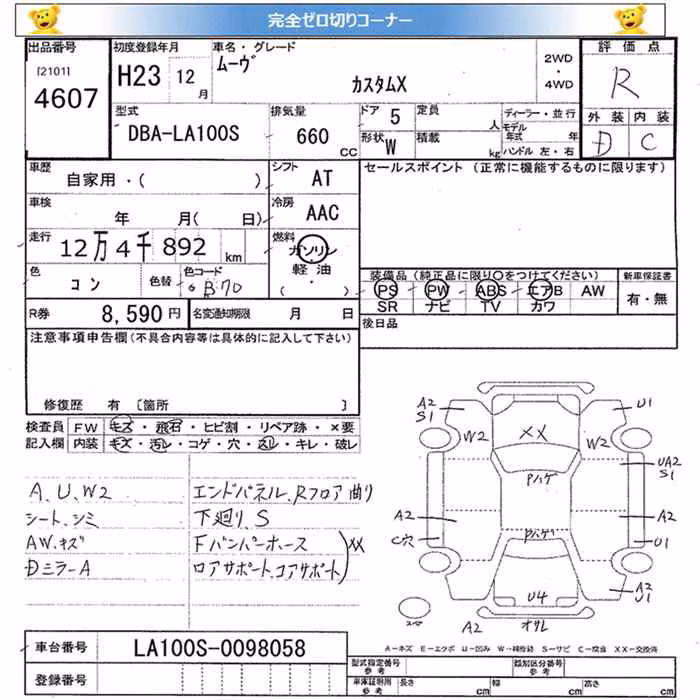 完全ゼロ切りコーナー
出品番号
[2101]
4607
初度登録年月
H23 12月
車名・グレード
ムーヴ
カスタムX
2WD
・
4WD
評価点
R
外装 内装
D C
型式
DBA-LA100S
排気量
660
CC
ドア 5
形状 W
定員
人
積載
kg
ディーラー・並行
モデル年式 年
ハンドル 左・右
車歴
自家用・( )
シフト
AT
セールスポイント (正常に機能するものに限ります)
車検
年 月( 日)
冷房
AAC
走行
12万4千892 km
燃料
ガソリン
・
軽油
( )
色
コン
色替
色コード
B70
装備品 (純正品に限り○をつけてください)
PS PW ABS エアB AW
SR ナビ TV カワ
新車保証書
有・無
R券
8,590円
名変通知期限
月 日
後日品
注意事項申告欄(不具合内容等は具体的に記入して下さい)
修復歴 有 [箇所 ]
検査員
記入欄
FW キズ・飛石・ヒビ割・リペア跡・×要
内装 キズ・汚レ・コゲ・穴・スレ・キレ・破レ
A、U、W2
シート、シミ
AW、キズ
Dミラー A
エンドパネル、Rフロア曲り
下廻り、S
Fバンパーホース
ロアサポート、コアサポート
XX
A2
S1
U1
W2
XX
W2
Pハゲ
UA2
S1
A2
A2
C穴
Pハゲ
U1
U4
A2
U1
スペア
A2
オサレ
A-キズ E-エクボ U-凹み W-補修跡 S-サビ C-腐食 XX-交換済
車台番号
LA100S-0098058
登録番号
型式指定番号
参考
類別区分番号
参考
車庫証明用
参考
長さ cm
幅 cm
高さ cm